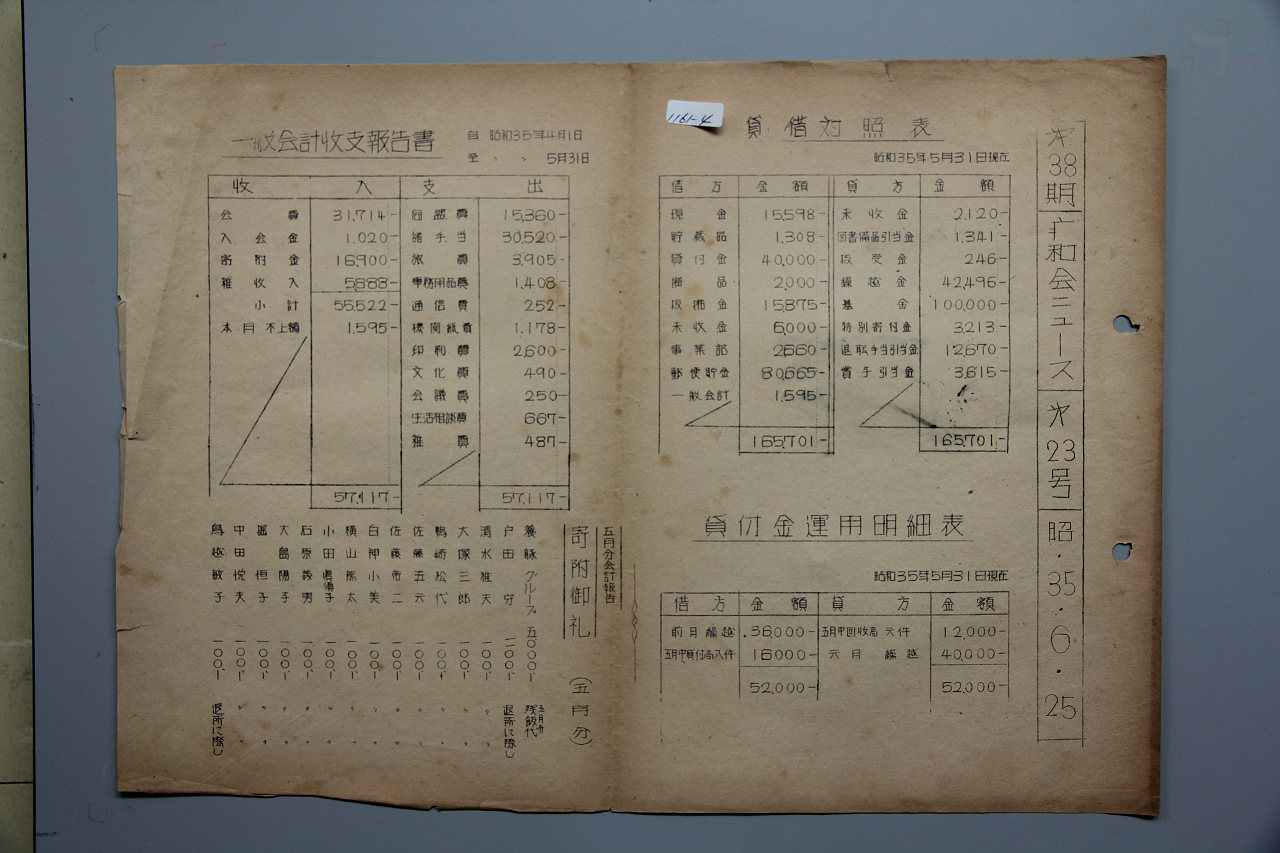 1161-4
才38期 広和会ニュース 才23号 昭・35・6・25
貸借対照表
昭和35年5月31日現在
借方 金額 貸方 金額
現金 15,598- 未收金 2,120-
貯蔵品 1,308- 図書備品引当金 1,341-
貸付金 40,000- 仮受金 246-
備品 2,000- 繰越金 42,496-
仮拂金 15,875- 基金 100,000-
未收金 6,000- 特別寄付金 3,213-
事業部 2,660- 退職手当引当金 12,670-
郵便貯金 80,665- 賞手引当金 3,615-
一般会計 1,595-
165,701- 165,701-
貸付金運用明細表
昭和35年5月31日現在
借方 金額 貸方 金額
前月繰越 36,000- 五月中回收高 六件 12,000-
五月中貸付高八件 16,000- 六月繰越 40,000-
52,000- 52,000-
一般会計收支報告書
自 昭和35年4月1日
至 〃 〃 5月31日
收入 支出
会費 31,714- 回惑費 15,360-
入会金 1,020- 諸手当 30,520-
寄附金 16,900- 旅費 3,905-
雑收入 5,888- 事務用品費 1,408-
小計 55,522- 通信費 252-
本月不上額 1,595- 機関紙費 1,178-
印刷費 2,600-
文化費 490-
会議費 250-
生活相談費 667-
雑費 487-
57,117- 57,117-
五月分会計報告
寄附御礼 (五月分)
養豚グループ 五〇〇〇、- 五月分残飯代
戸田守 二〇〇、- 退所に際し
清水雅夫 一〇〇、- 〃 〃
大塚三郎 一〇〇、- 〃 〃
鴨崎松代 一〇〇、- 〃 〃
佐藤五六 一〇〇、- 〃 〃
佐藤市二 一〇〇、- 〃 〃
白神小美 一〇〇、- 〃 〃
横山熊太 一〇〇、- 〃 〃
小田眞須子 一〇〇、- 〃 〃
石原義男 一〇〇、- 〃 〃
大島陽子 一〇〇、- 〃 〃
堀恒子 一〇〇、- 〃 〃
中田悦夫 一〇〇、- 〃 〃
鳥越敏子 一〇〇、- 退所に際し